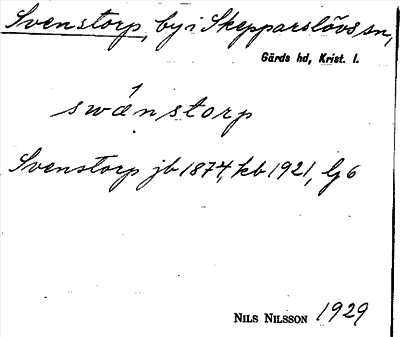 Svenstorp, by i Skepparslövs sn,
Gärds hd, Krist. l.
swǽnstorp
Svenstorp jb 1874, kb 1921, lj 6
NILS NILSSON 1929